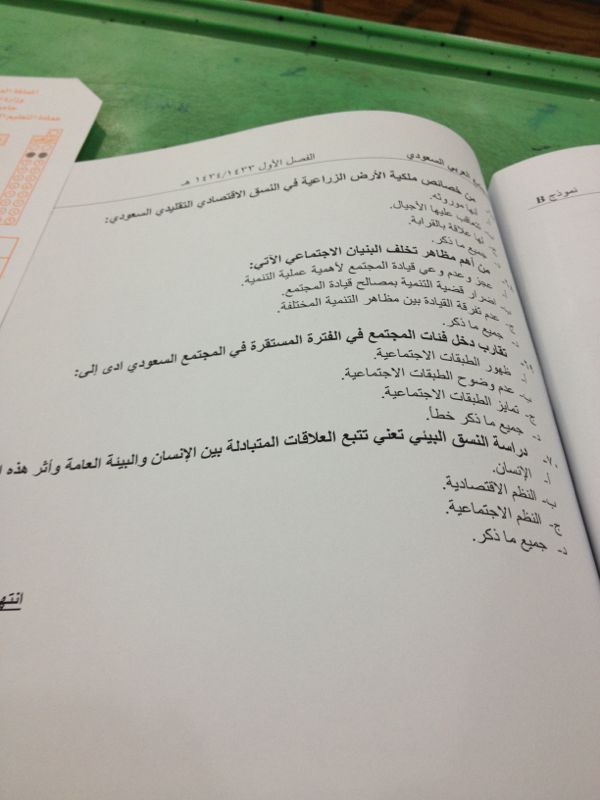 المملكة
وزارة
عمادة التعليم
العربي السعودي
الفصل الأول ١٤٣٤/١٤٣٣ هـ
نموذج B
من خصائص ملكية الأرض الزراعية في النسق الاقتصادي التقليدي السعودي:
أنها موروثه.
تتعاقب عليها الأجيال.
ج- لها علاقة بالقرابة.
د- جميع ما ذكر.
من أهم مظاهر تخلف البنيان الاجتماعي الآتي:
أ- عجز وعدم وعي قيادة المجتمع لأهمية عملية التنمية.
ب- اضرار قضية التنمية بمصالح قيادة المجتمع.
ج- عدم تفرقة القيادة بين مظاهر التنمية المختلفة.
د- جميع ما ذكر.
٦٩- تقارب دخل فئات المجتمع في الفترة المستقرة في المجتمع السعودي ادى إلى:
أ- ظهور الطبقات الاجتماعية.
ب- عدم وضوح الطبقات الاجتماعية.
ج- تمايز الطبقات الاجتماعية.
د- جميع ما ذكر خطأ.
٧٠- دراسة النسق البيئي تعني تتبع العلاقات المتبادلة بين الإنسان والبيئة العامة وأثر هذه
أ- الإنسان.
ب- النظم الاقتصادية.
ج- النظم الاجتماعية.
د- جميع ما ذكر.